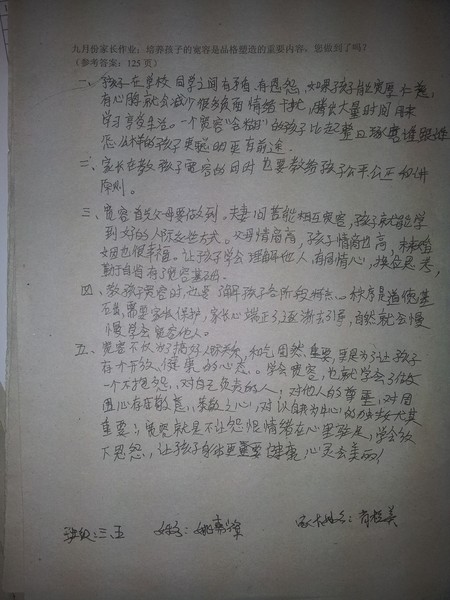 九月份家长作业：培养孩子的宽容是品格塑造的重要内容，您做到了吗？
（参考答案：125页）
一、孩子在学校同学之间有矛盾有恩怨，如果孩子能宽厚仁慈，
有心胸就会减少很多负面情绪干扰，腾出大量时间用来
学习享受生活。一个宽容"会相处"的孩子比起整日琢磨埋
怎么样的孩子更聪明更有前途.
二、家长在教孩子宽容的同时也要教给孩子公平公正和讲
原则。
三、宽容首先父母要做到。夫妻间若能相互宽容，孩子就能学
到好的人际交往方式。父母情商高，孩子情商也高，未来婚
姻也很幸福。让孩子学会理解他人，有同情心，换位思考，
勤于自省有了宽容基础.
四、教孩子宽容时，也要了解孩子各阶段特点。秩序是道德基
石，需要家长保护，家长心端正了逐渐去引导，自然就会慢
慢学会宽容他人。
五、宽容不仅为了搞好人际关系，和气固然重要，更是为了让孩子
有个开放、健康的心态。学会宽容，也就学会了做
一个不抱怨、对自己负责的人；对他人的尊重，对周
围心存在敬意、恭敬之心，对以自我为中心的独生子女尤其
重要；宽容就是不让怨恨情绪在心里驻足，学会放
下恩怨，让孩子身体更重要健康，心灵会美丽！
班级：三.五
家长姓名：